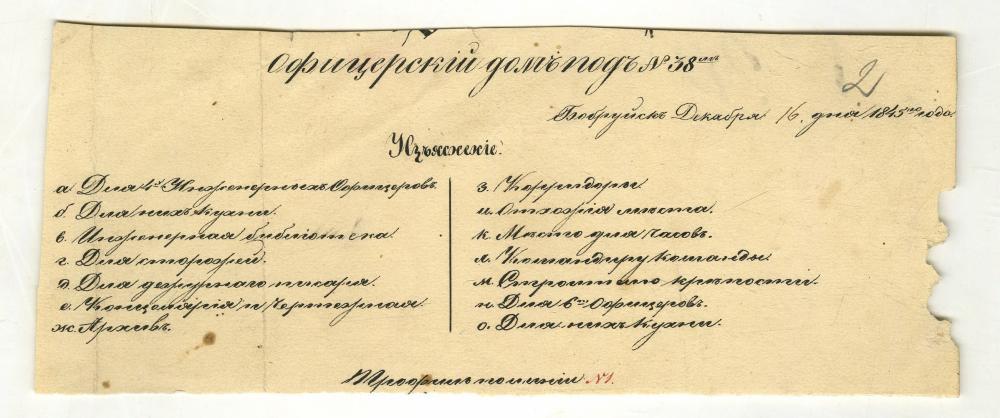 Офицерскій домъ подъ № 38мъ
2
Бобруйскъ Декабря 16. дня 1845го года.
Изъясненіе:
а Для 4хъ Инженерныхъ Офицеровъ.
б. Для нихъ кухни.
в. Инженерная библіотека.
г. Для сторожей.
д. Для дежурнаго писаря.
е. Канцелярія и Чертежная.
ж. Архивъ.
з. Корридоры.
и. Отхожія мѣста.
к. Мѣсто для часовъ.
л. Командиру команды.
м. Строителю крѣпости.
н. Для 6ти Офицеровъ.
о. Для нихъ кухни.
Профиль по линіи №1.